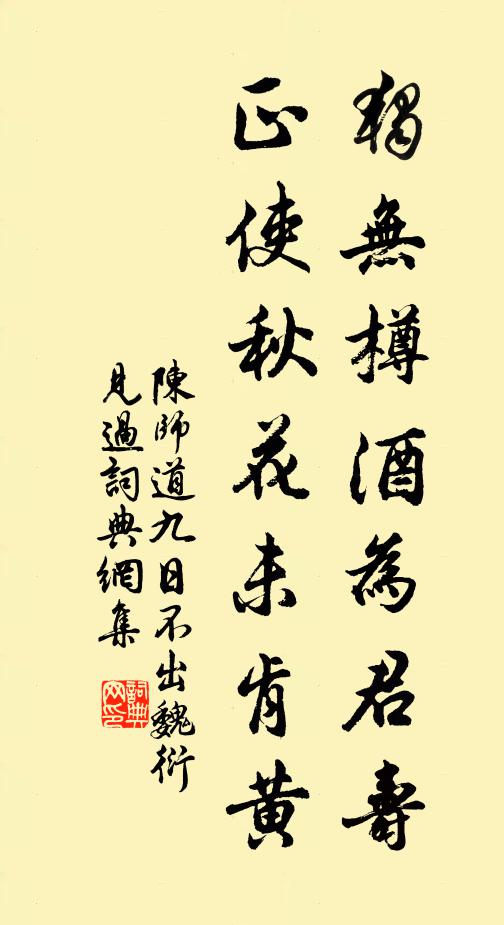 獨無樽酒為君壽
正使秋花未肯黃
陳師道九日不出魏衍
見過詞典網集
詞典网印